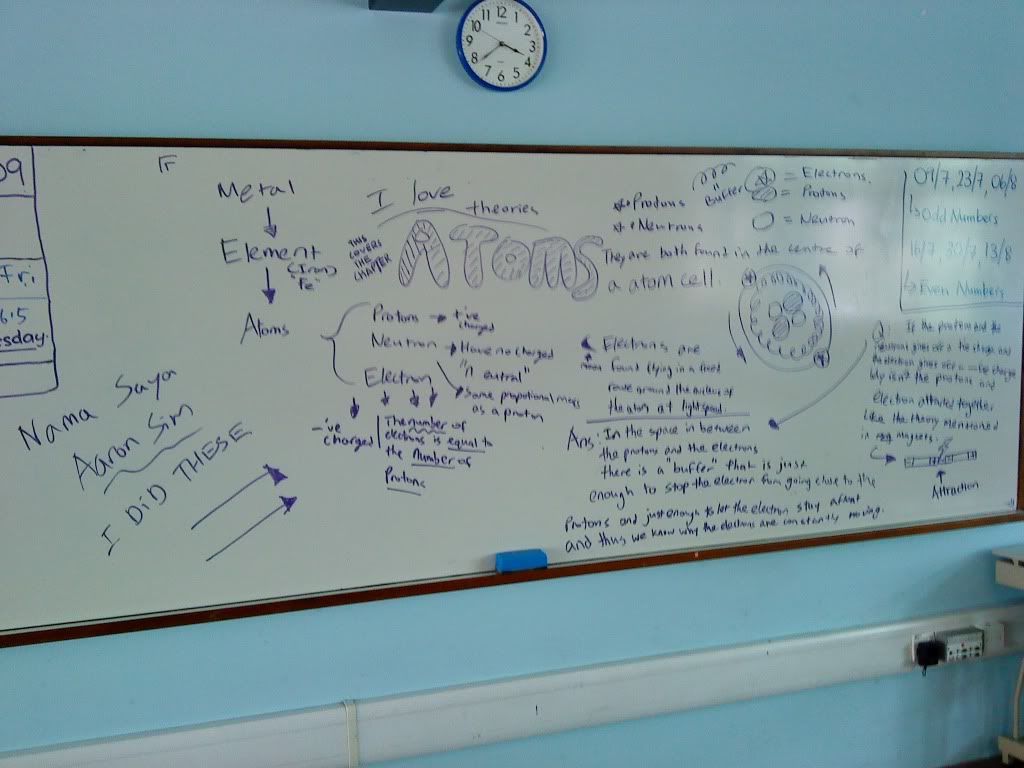 12
1
2
3
4
5
6
7
8
9
10
11
09
Fri,
6.5
esday.
Metal
Element
(Iron)
"Fe"
Atoms
I love
theories
THIS
COVERS
THE
CHAPTER
ATOMS
Protons → +'ve
charged
Neutron → Have no charged
"neutral"
Some proportional mass
as a proton
Electron
-'ve
charged
The number of
electrons is equal to
the number of
Protons
Nama Saya
Aaron Sim
I DiD THESE
* Protons
* Neutrons
They are both found in the centre of
a atom cell.
"Buffer"
= Electrons.
= Protons
= Neutron
Electrons are
found flying in a fixed
route around the nucleus of
the atom at light speed.
Ans: In the space in between
the protons and the electrons
there is a "buffer" that is just
enough to stop the electron from going close to the
Protons and just enough to let the electron stay afloat
and thus we know why the electrons are constantly moving.
09/7, 23/7, 06/8
↳ Odd Numbers
16/7, 30/7, 13/8
↳ Even Numbers
Q: If the proton and the
charge and
the electron gives off a -ve charge
Why isn't the protons and
electron attracted together
Like the theory mentioned
in magnets.
Attraction